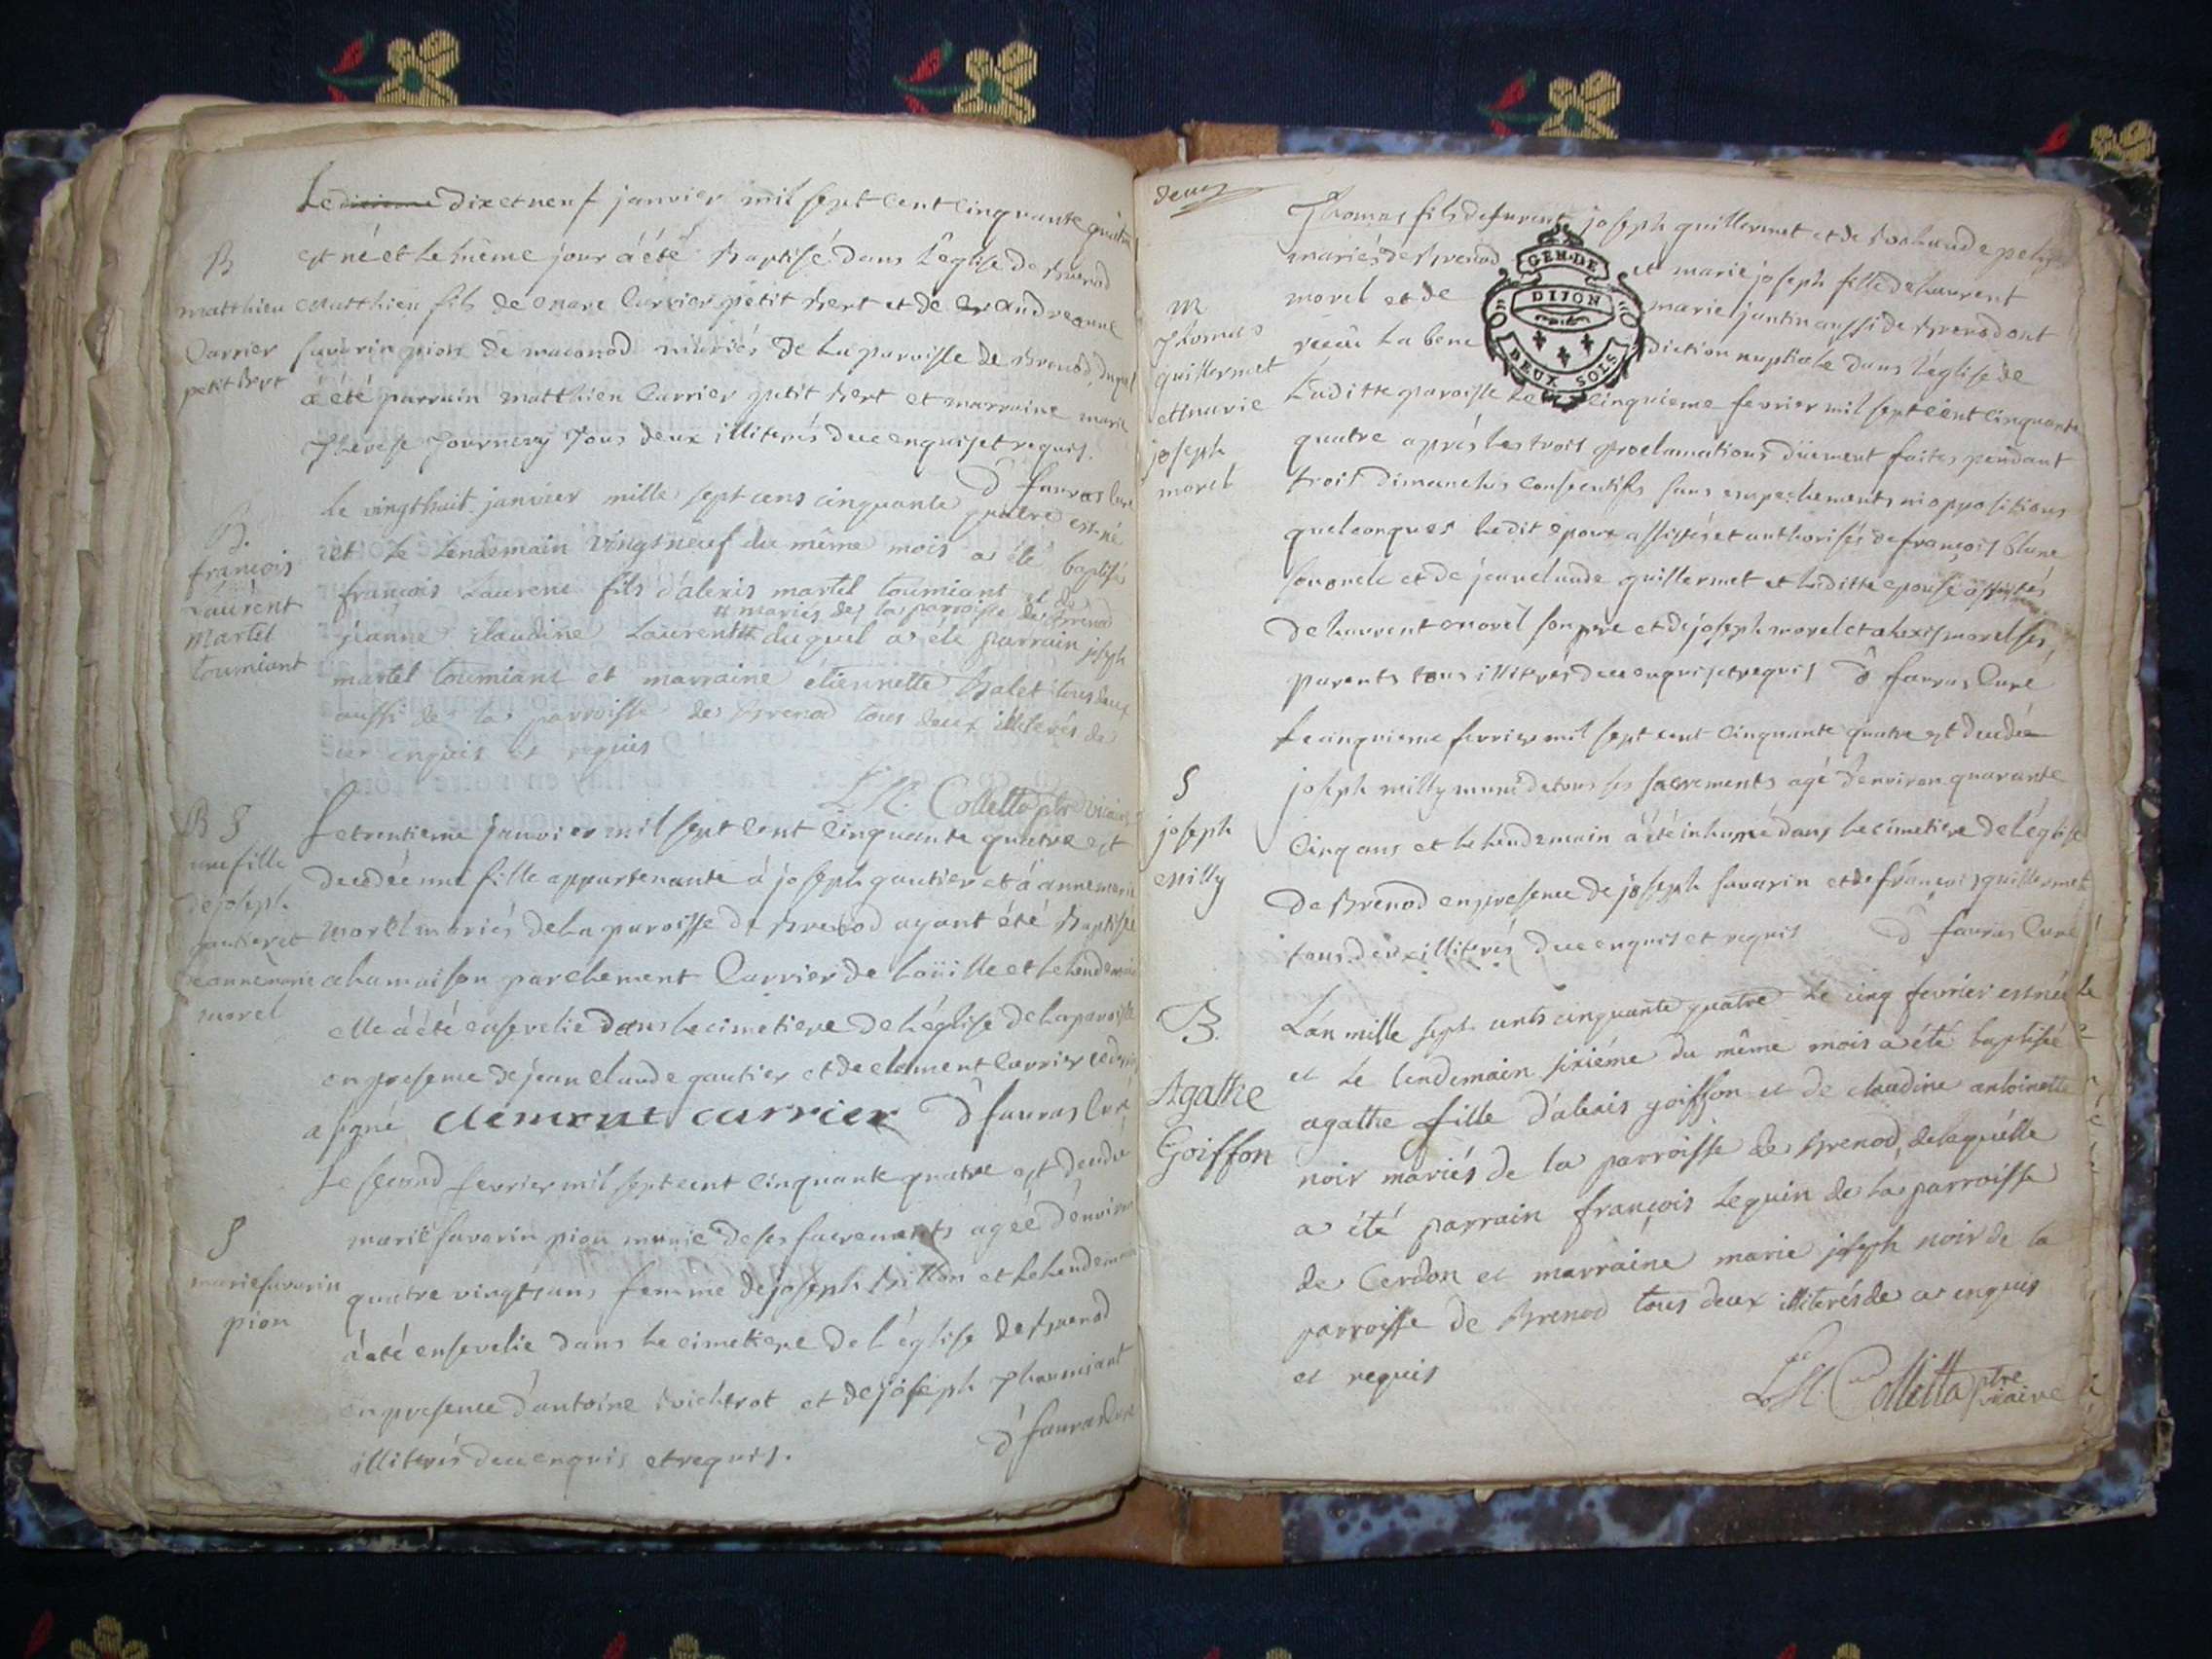 Le dix et neuf janvier mil sept cent cinquante quatre
est né et le même jour a été Baptisé dans l'église de Brenod
B
matthieu
Carrier
petit bert
Matthieu fils de Carrier petit bert et de andreanne
savarin pion de maconod mariés de la paroisse de Brenod, duquel
a été parrain matthieu Carrier petit bert et marraine marie
Therese tous deux illiterés de ce enquis et requis.
D favras Curé
B.
françois
Laurent
Martel
toumiant
le vingt huit janvier mille sept cens cinquante quatre est né
et le lendemain vingt neuf du même mois a été baptisé
françois Laurent fils d'alexis martel toumiant et de
# mariés de la parroisse de Brenod
jeanne claudine Laurent # duquel a été parrain joseph
martel toumiant et marraine etiennette Balet tous deux
aussi de la parroisse de Brenod tous deux illiterés de
ce enquis et requis
L.M. Colletta ptre vicaire
B S
une fille
de joseph
gautier et
d'annemarie
morel
Le trentieme janvier mil sept cent cinquante quatre est
decedée une fille appartenante à joseph gautier et à annemarie
morel mariés de la paroisse de Brenod ayant été Baptisée
a la maison par clement Carrier de et le lendemain
elle a été ensevelie dans le cimetiere de l'église de la paroisse
en presence de jean claude gautier et de clement Carrier
a signé clement carrier D favras Curé
S
marie savarin
pion
Le second fevrier mil sept cent cinquante quatre est decedée
marie savarin pion munie de ses sacrements agée d'environ
quatre vingt ans femme de joseph et le lendemain
a été ensevelie dans le cimetiere de l'église de Brenod
en presence d'antoine et de joseph
illiterés de ce enquis et requis.
D favras Curé
deux
M
Thomas
guillermet
et marie
joseph
morel
Thomas fils de furent joseph guillermet et de
mariés de Brenod et marie joseph fille de laurent
GEN. DE
DIJON
DEUX SOLS
morel et de marie jantin aussi de Brenod ont
reçu la bene diction nuptiale dans l'église de
laditte paroisse le cinquieme fevrier mil sept cent cinquante
quatre après les trois proclamations düement faites pendant
trois dimanches consecutifs sans empechements ni oppositions
quelconques ledit epoux assisté et authorisé de françois blanc
son oncle et de jean claude guillermet et laditte epouse assistée
de laurent morel son pere et de joseph morel et alexis morel ses
parents tous illiterés de ce enquis et requis D favras Curé
S
joseph
milly
Le cinquieme fevrier mil sept cent cinquante quatre est decedé
joseph milly muni de tous ses sacrements agé d'environ quarante
cinq ans et le lendemain a été inhumé dans le cimetiere de l'église
de Brenod en presence de joseph savarin et de françois guillermet
tous deux illiterés de ce enquis et requis D favras Curé
B.
Agathe
Goiffon
L'an mille sept cents cinquante quatre le cinq fevrier est née
et le lendemain sixiéme du même mois a été baptisée
agathe fille d'alexis goiffon et de claudine antoinette
noir mariés de la parroisse de Brenod, delaquelle
a été parrain françois Lequin de la parroisse
de Cerdon et marraine marie joseph noir de la
parroisse de Brenod tous deux illiterés de ce enquis
et requis
L.M. Colletta ptre
vicaire